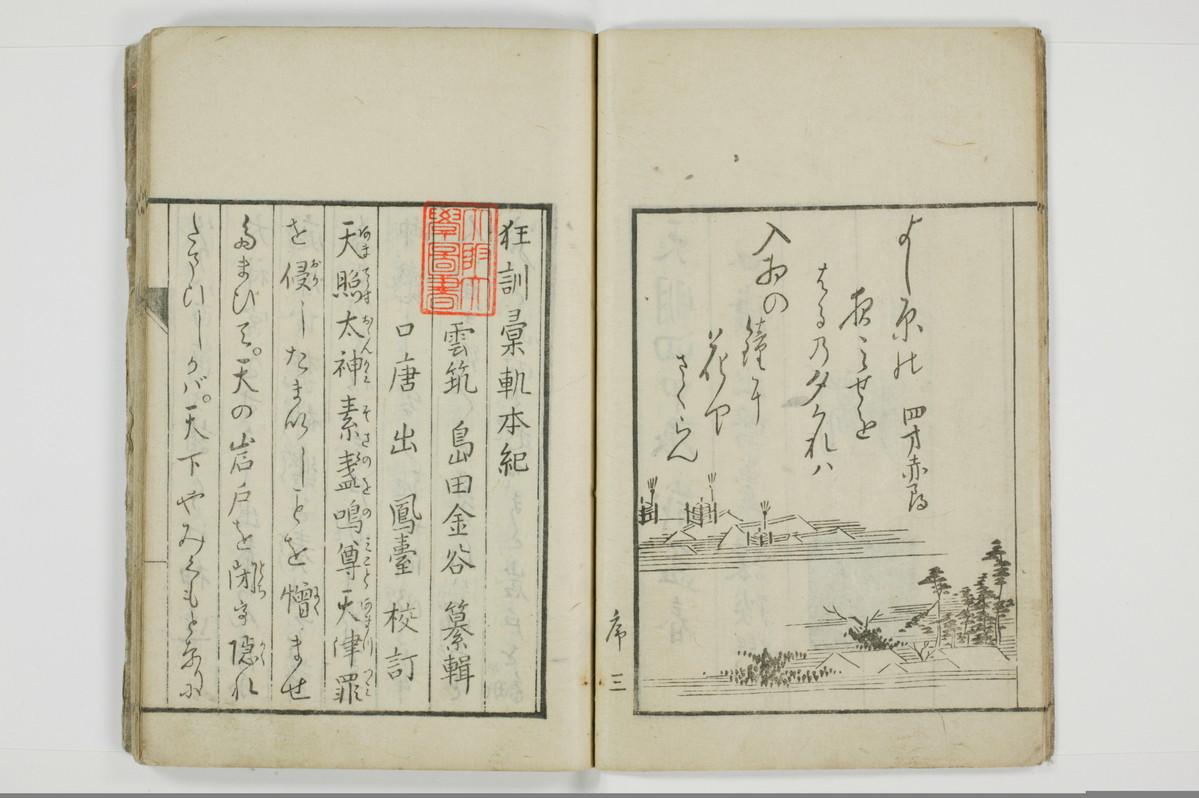 よし原の 四方赤良
夜るみせを
はるの夕くれハ
入相の
鐘に
花や
さくらん
序 三
狂訓彙軌本紀
大阪大學圖書
雲筑 島田金谷 纂輯
口唐出 鳳臺 校訂
天照太神素盞嗚尊天津罪
を侵したまひしことを憎ませ
たまひて。天の岩戸を閉て隠れ
たまひしかバ。天下やみくもとなりに